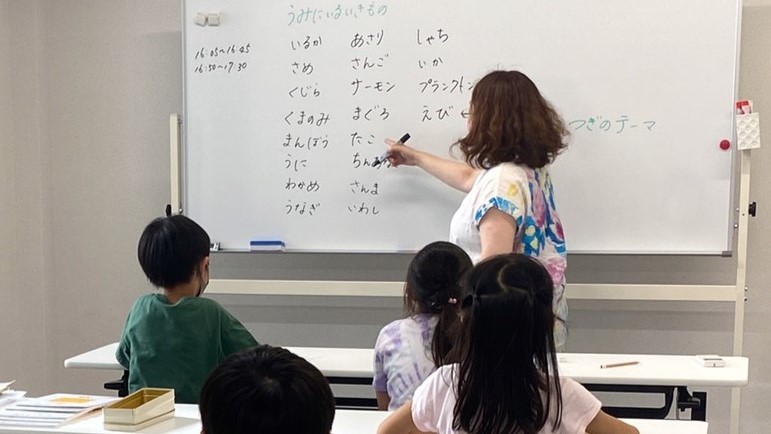 うみにいるいきもの
16:05〜16:45
16:50〜17:30
いるか あさり しゃち
さめ さんご いか
くじら サーモン プランクトン
くまのみ まぐろ えび ←
つぎのテーマ
まんぼう たこ
うに
わかめ さんま
うなぎ いわし